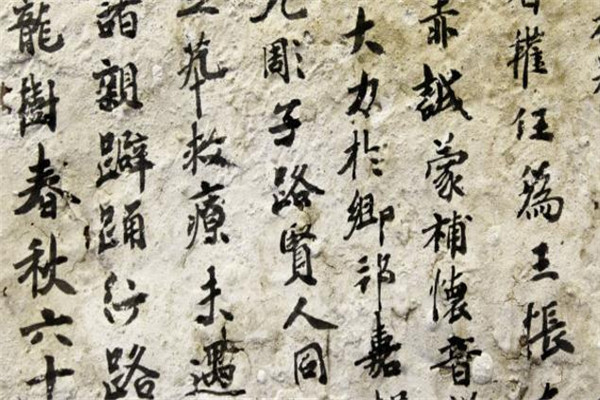 權任為王悵
赤誠蒙補懷音
大力於鄉嘉
彫子路賢人同
救療未遇
親躃踊行路
龍樹春秋六十